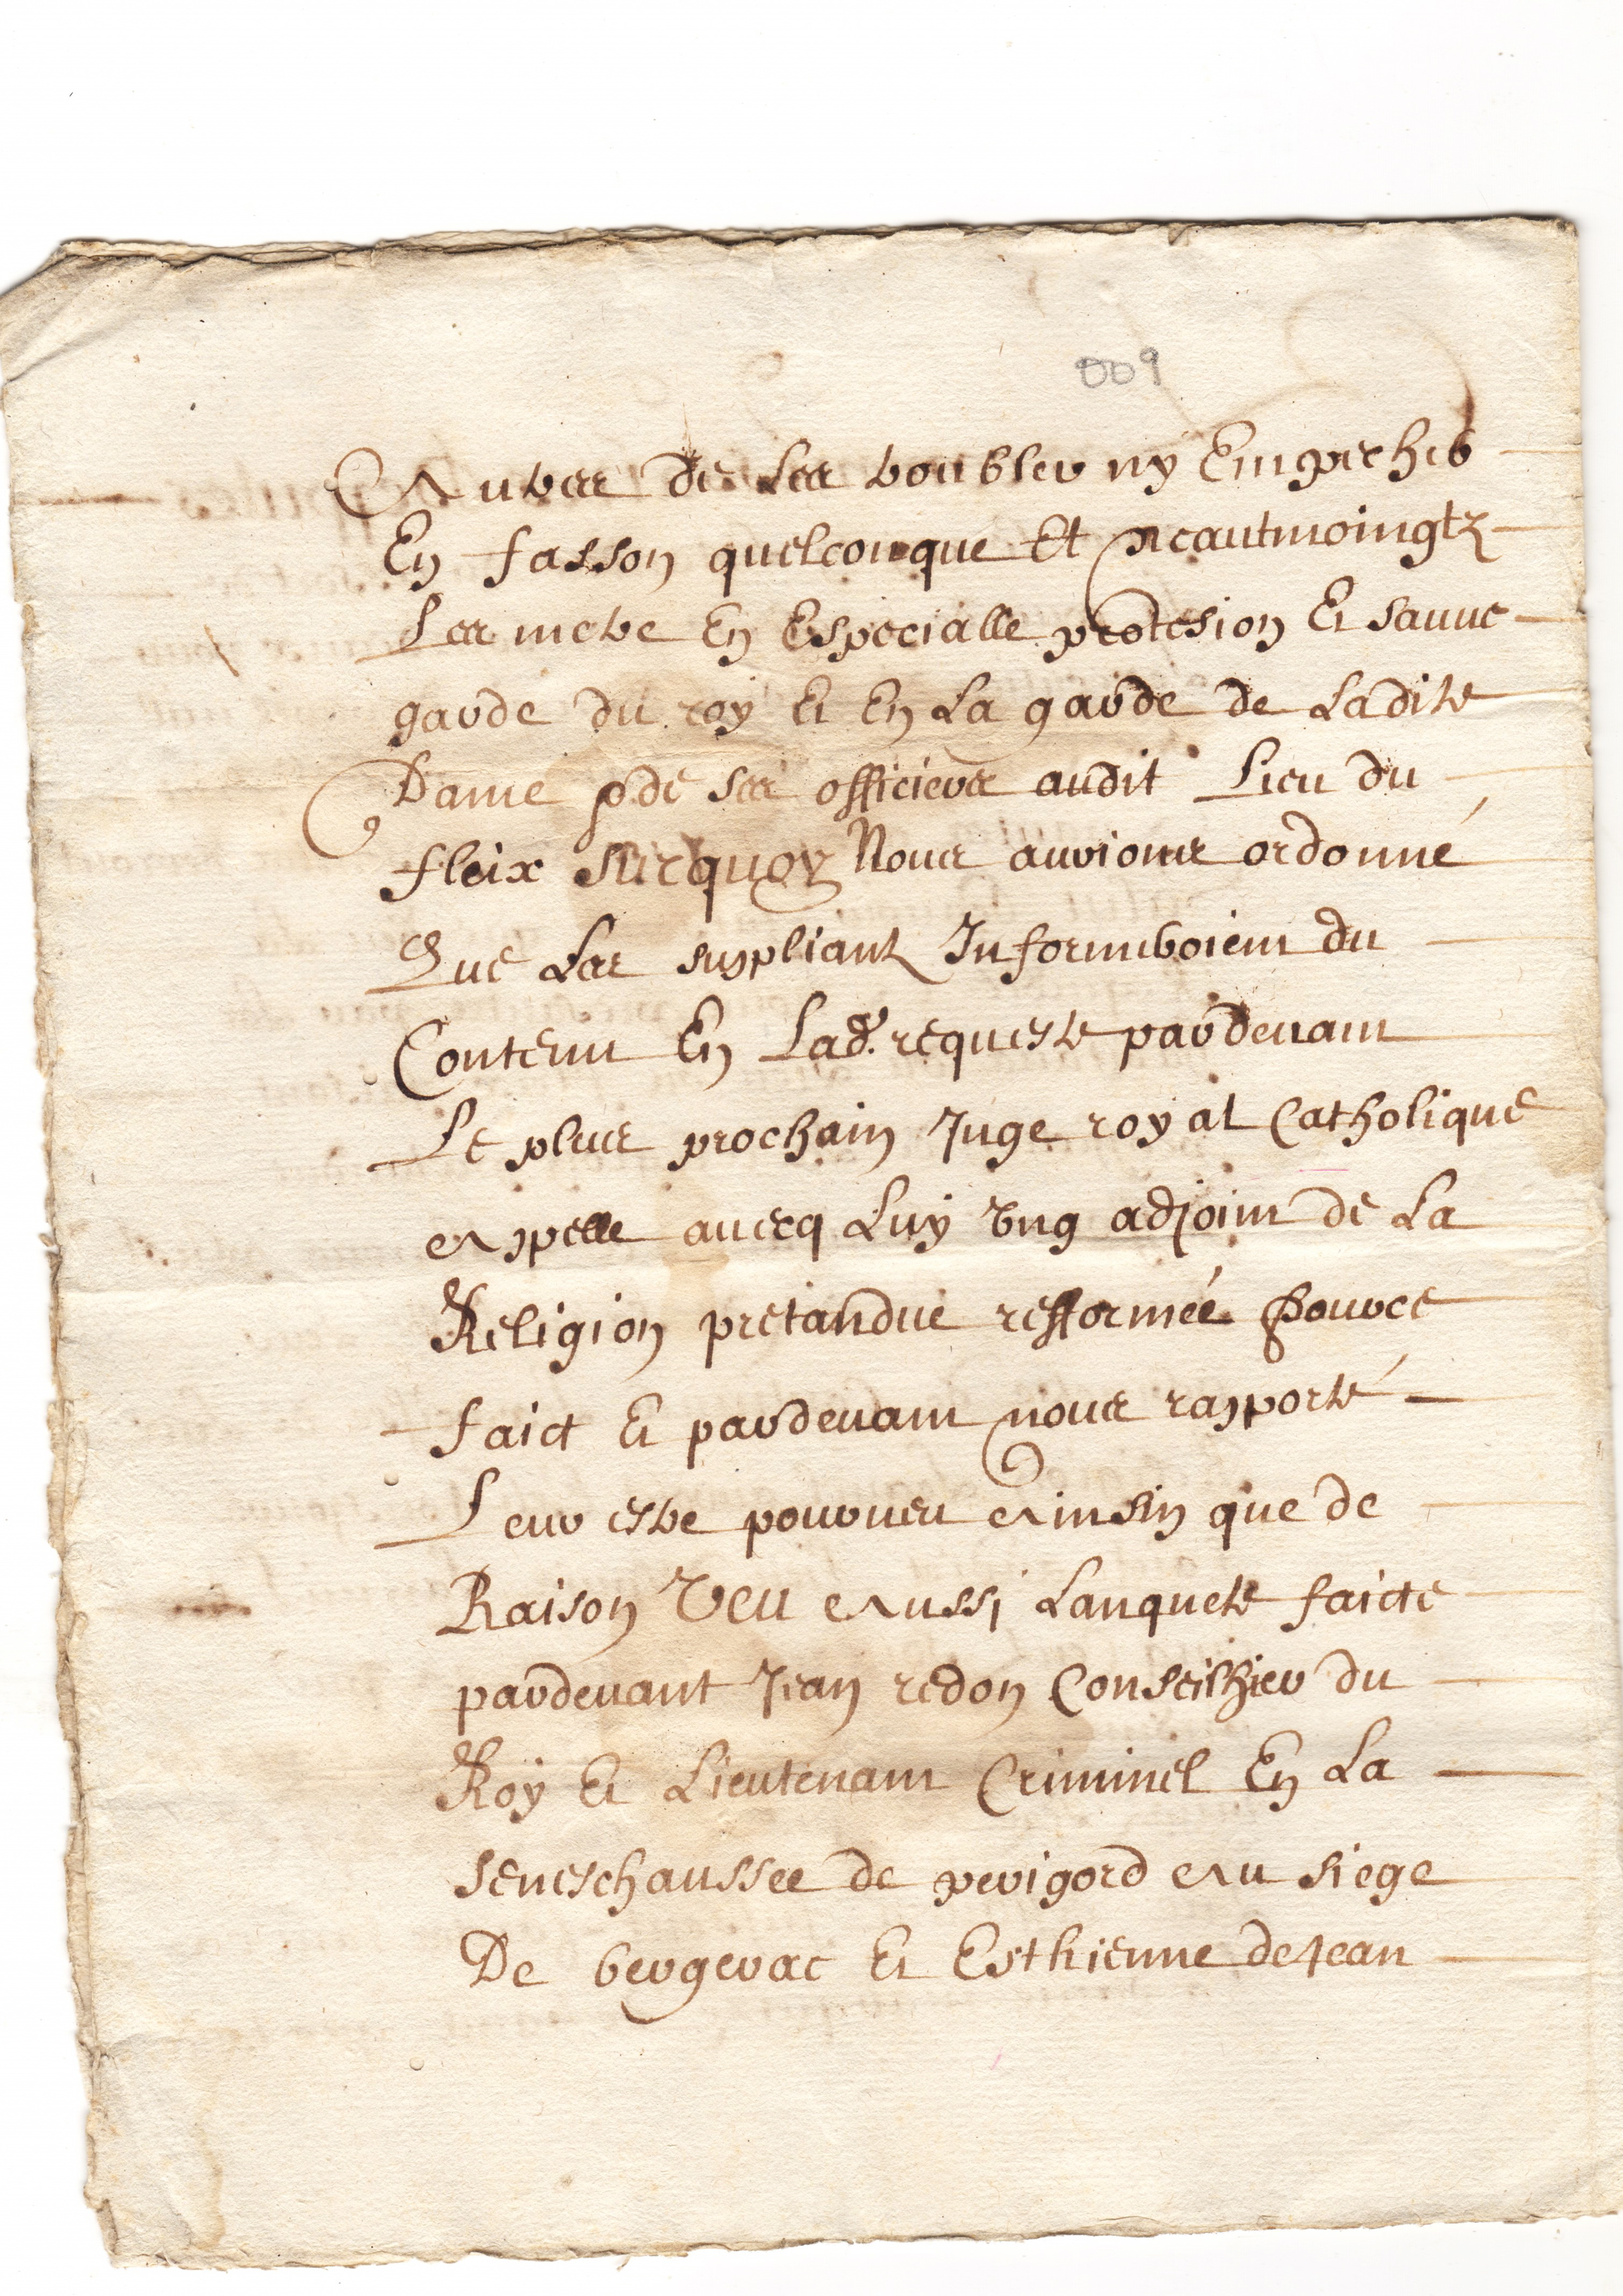 009
Autres de les troubler ny Empecher
En fasson quelconque Et neautmoingtz
Les metre En Especialle protesion Et sauue
garde du roy Et En La garde de Ladite
Dame et de ses officiers audit Lieu du
fleix surquoy Nous aurions ordonné
Que Les suppliantz Informeroient du
Contenu En Lad. requeste pardeuant
Le plus prochain Juge royal Catholique
Apelle auecq Luy Ung adjoint de La
Religion pretandue refformée Pour ce
faict Et pardeuant nous rapporté
Leur estre pourueu Ainsin que de
Raison Veu Aussi Lanquete faicte
pardeuant Jean redon Conseilhier du
Roy Et Lieutenant Criminel En La
seneschaussee de perigord Au siege
De bergerac Et Esthienne de Jean